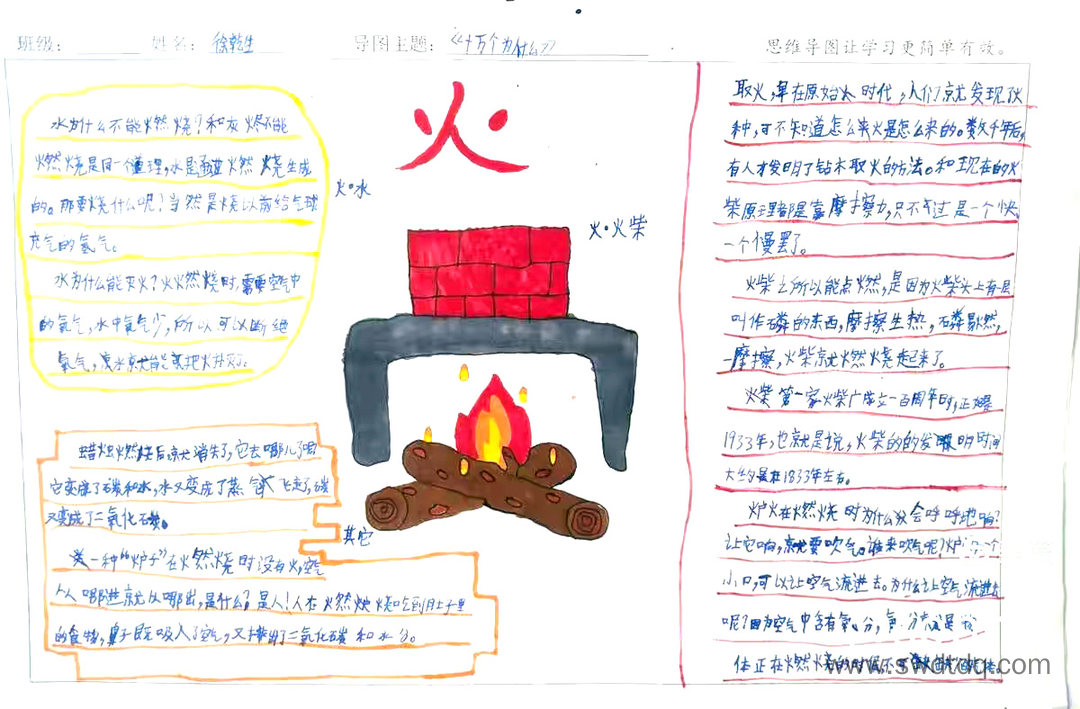 班级： 姓名：徐乾生 导图主题：《十万个为什么》 思维导图让学习更简单有效。
火
水为什么不能燃烧？和灰烬不能
燃烧是同一个道理，水是氢燃烧生成
的。那要烧什么呢？当然是烧以前给气球
充气的氢气。
水为什么能灭火？火燃烧时，需要空气中
的氧气，水中氧气少，所以可以断绝
氧气，凉水就能把火扑灭了。
火·水
火·火柴
其它
蜡烛燃烧后就消失了，它去哪儿了呢
它变成了碳和水，水又变成了蒸气飞走了，碳
又变成了二氧化碳。
一种“炉子”在燃烧时没有火，空气
从哪进就从哪出，是什么？是人！人在燃烧吃到肚子里
的食物，鼻子既吸入了空气，又排出了二氧化碳和水分。
取火，早在原始人时代，人们就发现伙
种，可不知道怎么来火是怎么来的。数千年后，
有人才发明了钻木取火的方法。和现在的火
柴原理都是靠摩擦力，只不过是一个快
一个慢罢了。
火柴之所以能点燃，是因为火柴头上有一层
叫作磷的东西，摩擦生热，磷易燃，
一摩擦，火柴就燃烧起来了。
火柴第一家火柴厂成立一百周年时，正好是
1933年，也就是说，火柴的的发明时间
大约是在1833年左右。
炉火在燃烧时为什么会呼呼地响？
让它响，就要吹气。谁来吹气呢？炉 一个
小口，可以让空气流进去。为什么让空气流进去
呢？因为空气中含有氧分，氧分就是
体正在燃烧的时候不可
www.swdtdq.com